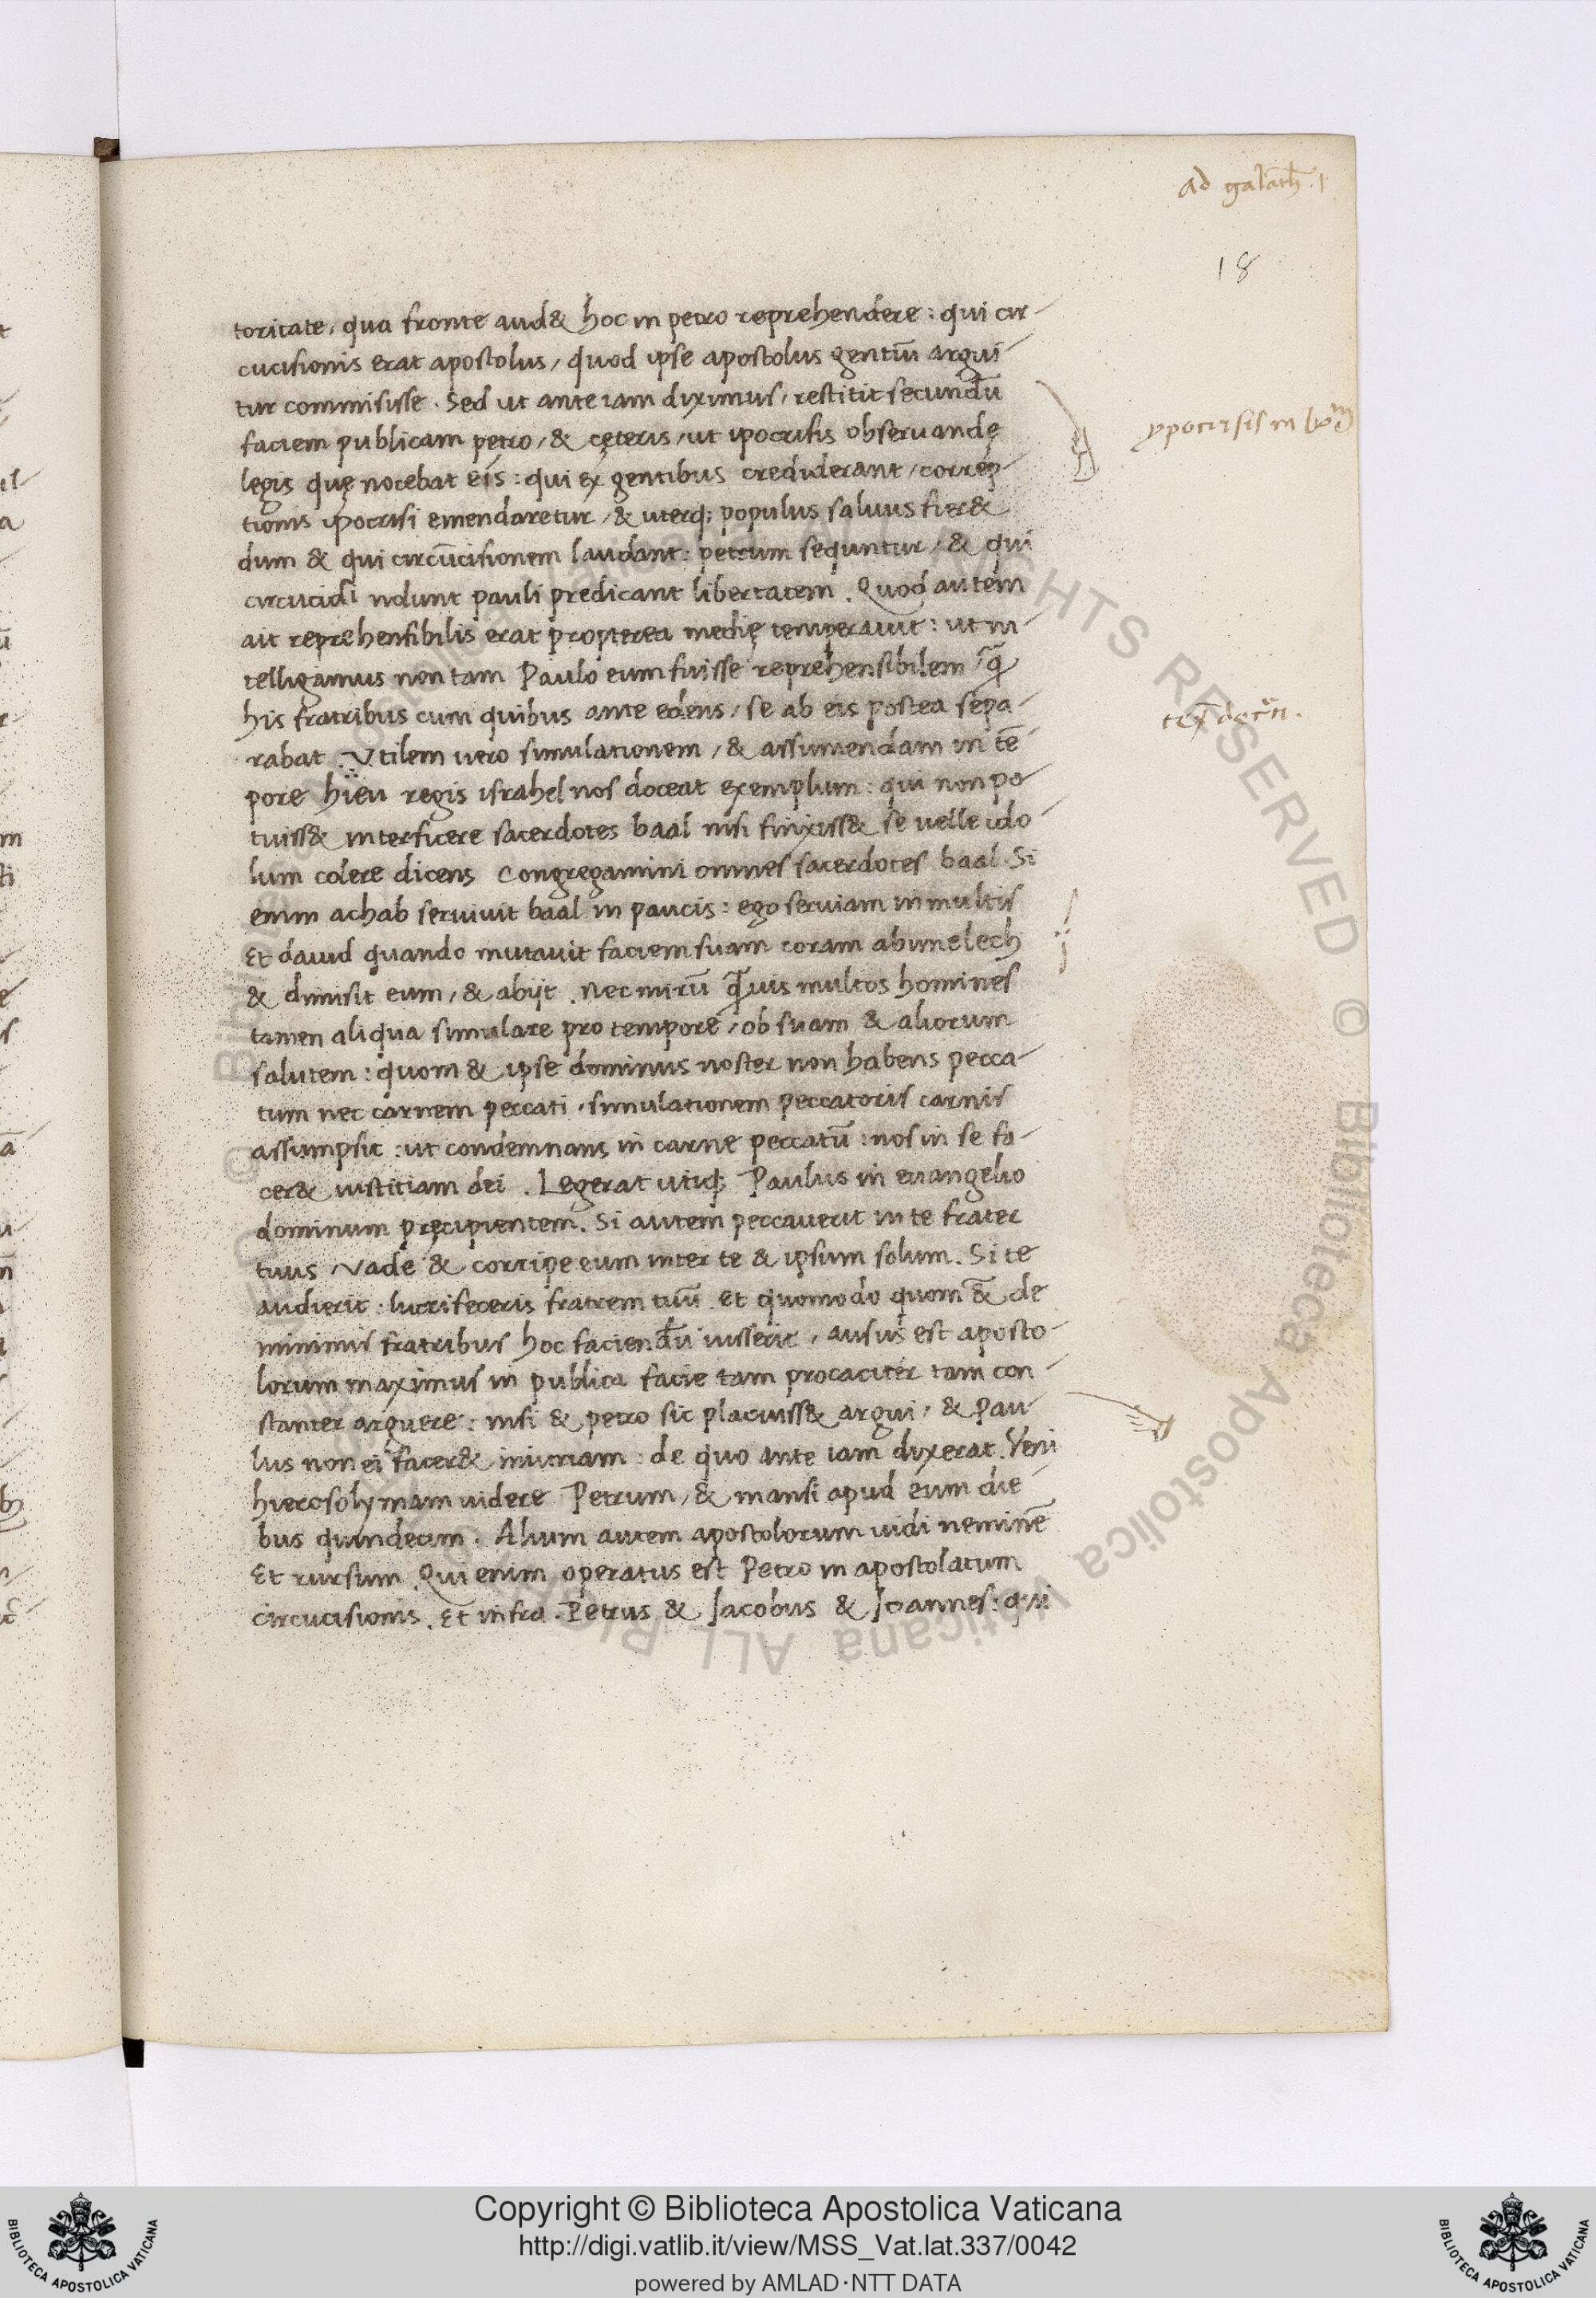 ad galath̄. 1
18
toritate, qua fronte aud& hoc in petro reprehendere: qui cir-
cucisionis erat apostolus, quod ipse apostolus gentiū argui-
tur commisisse. Sed ut ante iam diximus, restitit secundū
faciem publicam petro, & cęteris, ut ipocrisis obseruandę
legis quę nocebat eis: qui ex gentibus crediderant, correp-
tionis ipocrisi emendaretur, & uterq; populus saluus fier&
dum & qui circūcisionem laudant: petrum sequntur, & qui
circucidi nolunt pauli predicant libertatem. Quod autem
ait reprehensibilis erat propterea medię temperauit: ut in-
telligamus non tam Paulo eum fuisse reprehensibilem, q̄
his fratribus cum quibus ante edens, se ab eis postea sepa-
rabat. Vtilem uero simulationem, & assumendam in tē-
pore hieu regis israhel nos doceat exemplum: qui non po-
tuiss& interficere sacerdotes baal nisi finxiss& se uelle ido-
lum colere dicens Congregamini omnes sacerdotes baal. Si
enim achab seruiuit baal in paucis: ego seruiam in multis
Et dauid quando mutauit faciem suam coram abimelech
& dimisit eum, & abijt. Nec mirū q̄uis multos homines
tamen aliqua simulare pro tempore, ob suam & aliorum
salutem: quom & ipse dominus noster non habens pecca-
tum nec carnem peccati, simulationem peccatoris carnis
assumpsit: ut condemnans in carne peccatū: nos in se fa-
cer& iustitiam dei. Legerat utiq; Paulus in euangelio
dominum pręcipientem. Si autem peccauerit in te frater
tuus, Vade & corripe eum inter te & ipsum solum. Si te
audierit: lucrifeceris fratrem tuū. et quomodo quom &̄ de
minimis fratribus hoc faciendū iusserit, ausus est aposto-
lorum maximus in publica facie tam procaciter tam con-
stanter arguere: nisi & petro sic placuiss& argui, & Pau-
lus non ei facer& iniuriam: de quo ante iam dixerat. Veni
hierosolymam uidere Petrum, & mansi apud eum die-
bus quindecim. Alium autem apostolorum uidi neminē
Et rursum. Qui enim operatus est Petro in apostolatum
circucisionis. Et infra. Petrus & Jacobus & Joannes: qui
Copyright © Biblioteca Apostolica Vaticana
http://digi.vatlib.it/view/MSS_Vat.lat.337/0042
powered by AMLAD·NTT DATA
BIBLIOTECA APOSTOLICA VATICANA
BIBLIOTECA APOSTOLICA VATICANA